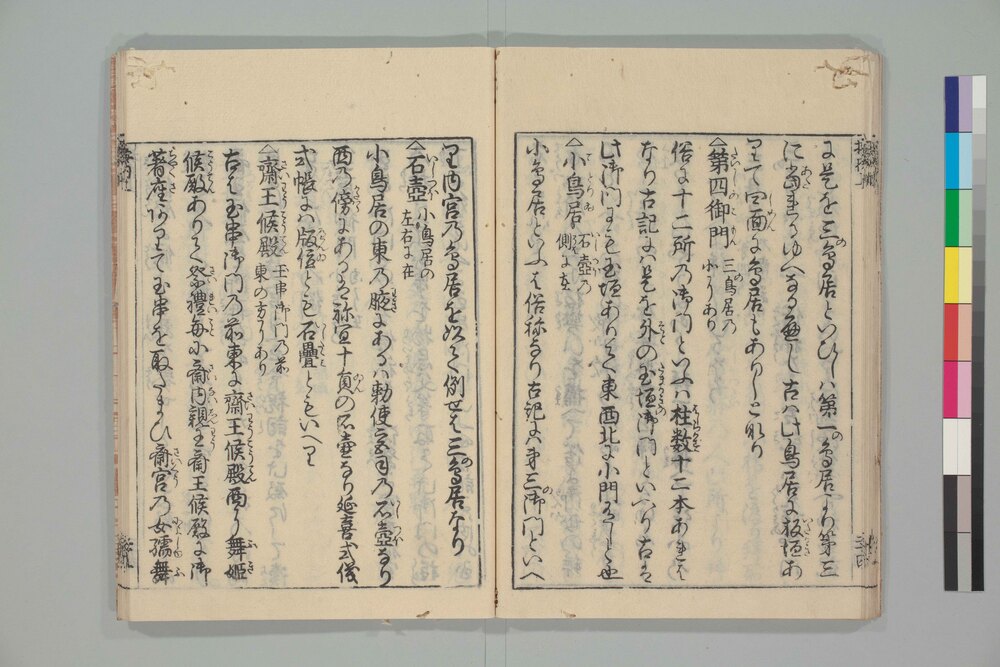 に是を三鳥居といひしハ第一鳥居より第三
に当れるゆへなるべし古ハ此鳥居に板垣あ
りて四面に鳥居もありしと見ゆ
第四御門 三鳥居の
北にあり
俗に十二所乃御門といふハ柱数十二本あれば
なり古記にハ是を外の玉垣御門といへり古は
此御門にも玉垣ありて東西北に小門有しと也
小鳥居 石壺の
側に在
小鳥居といふは俗称なり古記に第三御門といへ
り内宮乃鳥居を以て例せば三鳥居なり
石壺 小鳥居の
左右に在
小鳥居の東乃腋にあるハ勅使宮司乃石壺なり
西乃傍にあるは祢宜十員の石壺なり延喜式儀
式帳にハ版位とも石畳ともいへり
齋王候殿 玉串御門乃前
東の方にあり
古は玉串御門乃前東に齋王候殿西に舞姫
候殿ありて祭禮毎に齋内親王齋王候殿に御
着座ありて玉串を取たまひ齋宮乃女孺舞